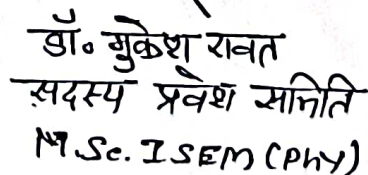 डॉ॰ मुकेश रावत
सदस्य प्रवेश समिति
M.Sc. I SEM (Phy)